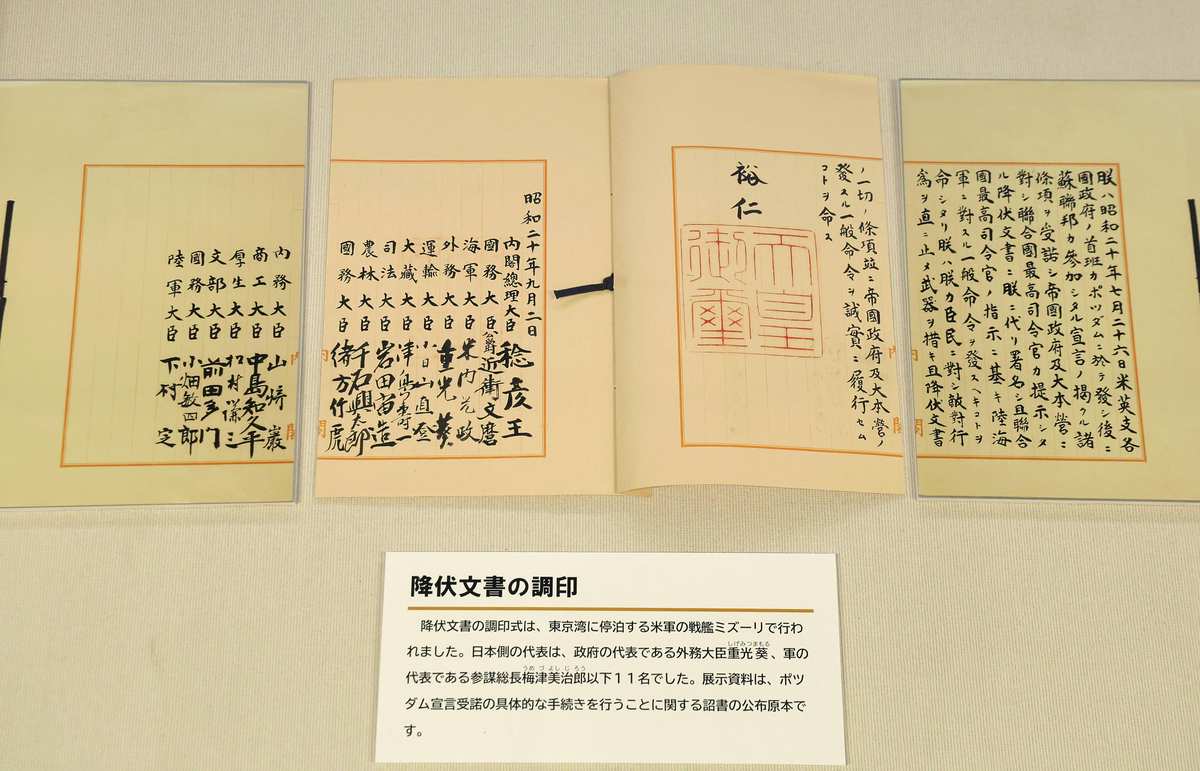 朕ハ昭和二十年七月二十六日米英支各
國政府ノ首班カポツダムニ於テ發シ後ニ
蘇聯邦カ參加シタル宣言ノ掲クル諸
條項ヲ受諾シ帝國政府及大本營ニ
對シ聯合國最高司令官カ提示シタ
ル降伏文書ニ朕ニ代リ署名シ且聯合
國最高司令官ノ指示ニ基キ陸海
軍ニ對スル一般命令ヲ發スヘキコトヲ
命シタリ朕ハ朕カ臣民ニ對シ敵對行
為ヲ直ニ止メ武器ヲ措キ且降伏文書
ノ一切ノ條項竝ニ帝國政府及大本營ノ
發スル一般命令ヲ誠實ニ履行セム
コトヲ命ス
裕仁
天皇
御璽
昭和二十年九月二日
内閣總理大臣 稔彦王
國務大臣公爵 近衛文麿
海軍大臣 米内光政
外務大臣 重光葵
運輸大臣 小日山直登
大藏大臣 津島壽一
司法大臣 岩田宙造
農林大臣 千石興太郎
國務大臣 緒方竹虎
内務大臣 山崎巖
商工大臣 中島知久平
厚生大臣 松村謙三
文部大臣 前田多門
國務大臣 小畑敏四郎
陸軍大臣 下村定
降伏文書の調印
降伏文書の調印式は、東京湾に停泊する米軍の戦艦ミズーリで行わ
しげみつまもる
れました。日本側の代表は、政府の代表である外務大臣重光葵、軍の
うめづよしじろう
代表である参謀総長梅津美治郎以下11名でした。展示資料は、ポツ
ダム宣言受諾の具体的な手続きを行うことに関する詔書の公布原本で
す。